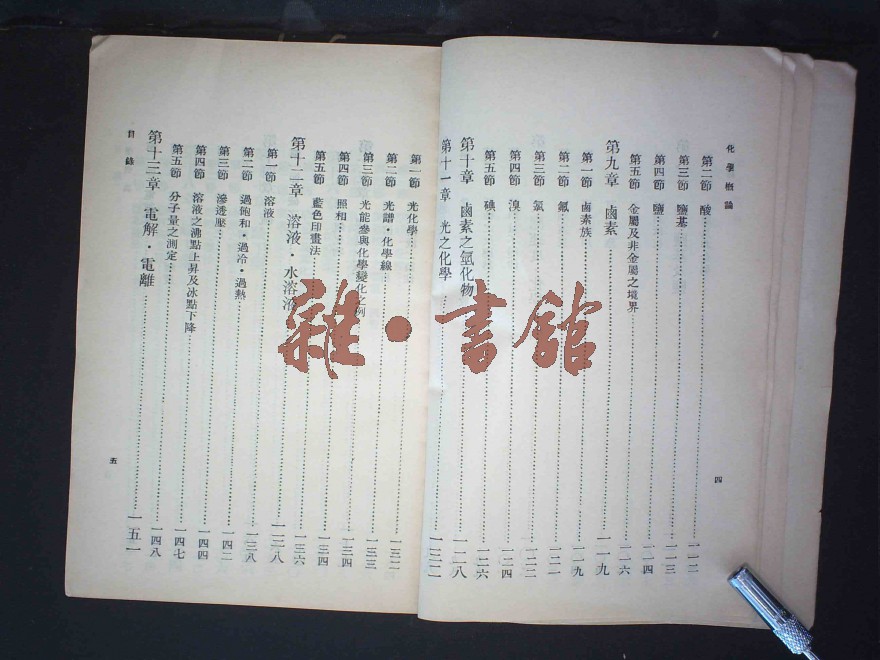 化學概論
第二節 酸 一一二
第三節 鹽基 一一三
第四節 鹽 一一四
第五節 金屬及非金屬之境界 一一六
第九章 鹵素 一一九
第一節 鹵素族 一一九
第二節 氟
第三節 氯
第四節 溴 一二四
第五節 碘 一二六
第十章 鹵素之氫化物 一二八
第十一章 光之化學
四
第一節 光化學 一三二
第二節 光譜·化學線 一三三
第三節 光能參與化學變化之例
第四節 照相 一三四
第五節 藍色印畫法
第十二章 溶液·水溶液 一三八
第一節 溶液
第二節 過飽和·過冷·過熱 一三八
第三節 滲透壓 一四二
第四節 溶液之沸點上昇及冰點下降 一四四
第五節 分子量之測定 一四七
第十三章 電解·電離 一五一
目錄
五
雜·書館